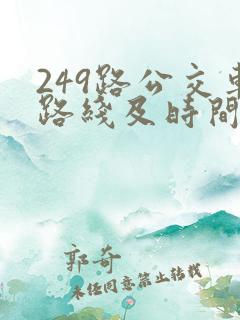 249路公交車
路綫及時間
郭奇
未经同意禁止转载